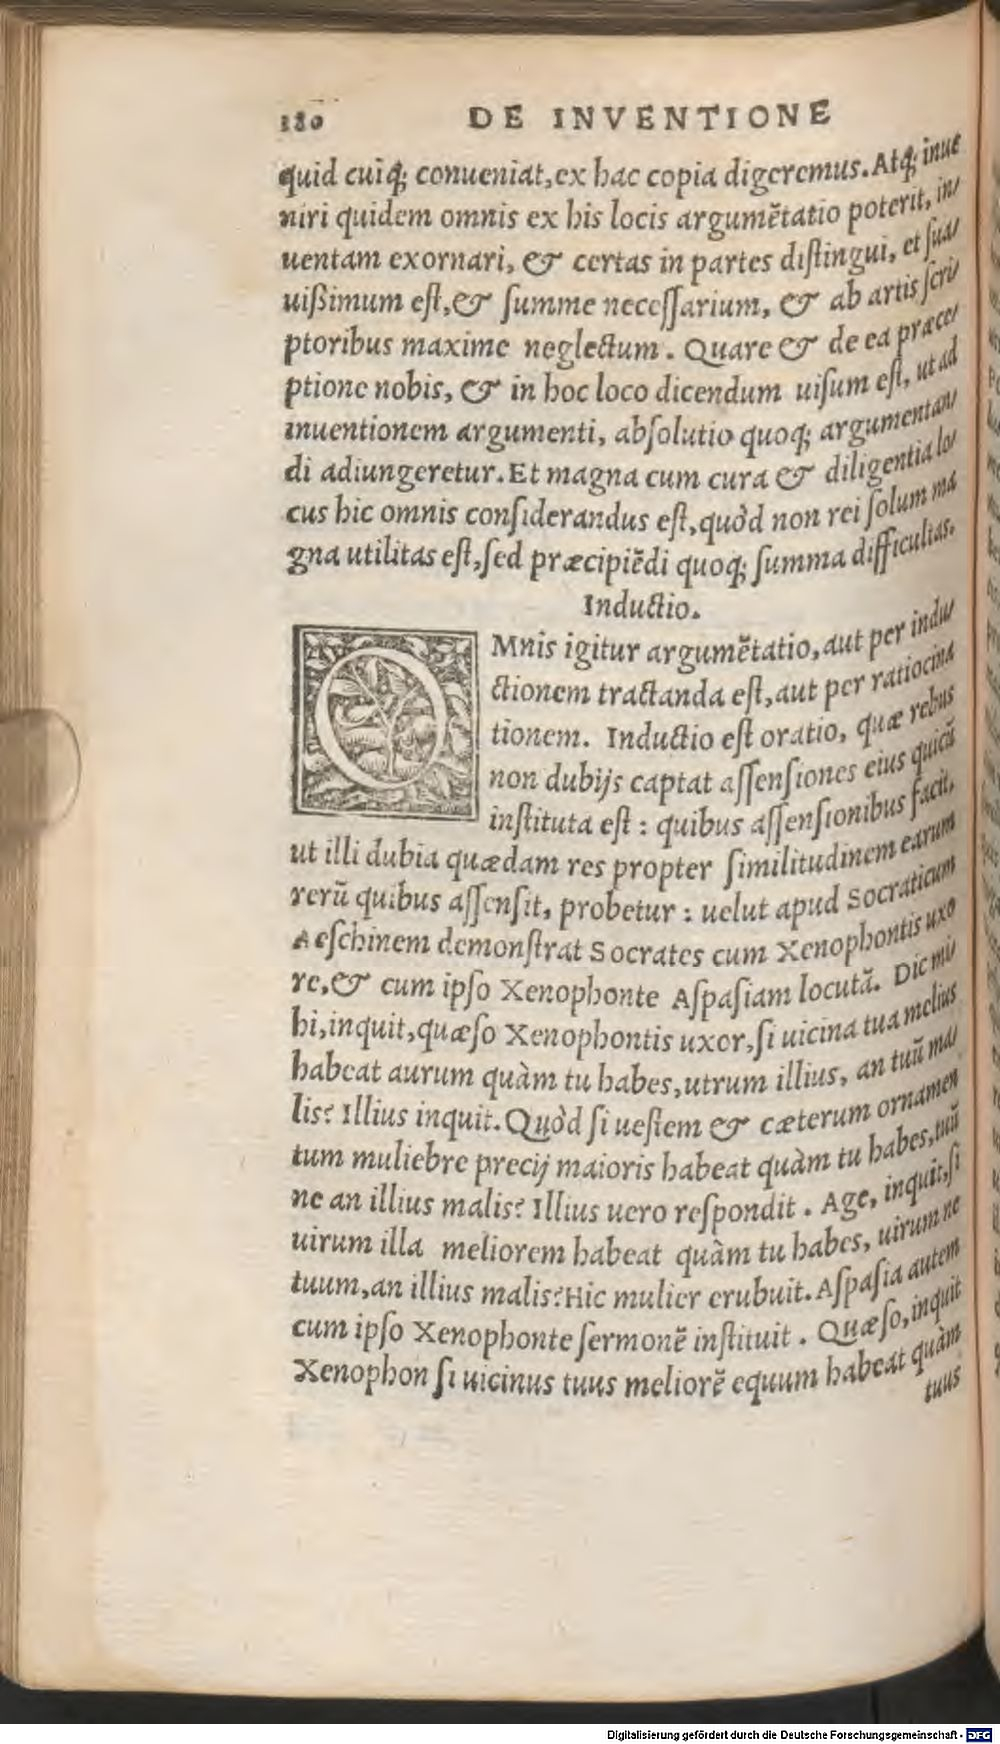 180 DE INVENTIONE
quid cuiq; conueniat,ex hac copia digeremus. Atq; inue
niri quidem omnis ex his locis argumẽtatio poterit, in/
uentam exornari, & certas in partes diſtingui, et ſua/
uißimum eſt,& ſumme neceſſarium, & ab artis ſcri/
ptoribus maxime neglectum. Quare & de ea præce/
ptione nobis, & in hoc loco dicendum uiſum eſt, ut ad
inuentionem argumenti, abſolutio quoq; argumentan/
di adiungeretur. Et magna cum cura & diligentia lo/
cus hic omnis conſiderandus eſt,quòd non rei ſolum ma
gna utilitas eſt,ſed præcipiẽdi quoq; ſumma difficultas.
Inductio.
OMnis igitur argumẽtatio,aut per indu/
ctionem tractanda eſt,aut per ratiocina
tionem. Inductio eſt oratio, quæ rebus
non dubijs captat aſſenſiones eius quicũ
inſtituta eſt : quibus aſſenſionibus facit,
ut illi dubia quædam res propter ſimilitudinem earum
rerũ quibus aſſenſit, probetur : uelut apud Socraticum
Aeſchinem demonſtrat Socrates cum Xenophontis uxo
re,& cum ipſo Xenophonte Aſpaſiam locutã. Dic mi/
hi,inquit,quæſo Xenophontis uxor,ſi uicina tua melius
habeat aurum quàm tu habes,utrum illius, an tuũ ma/
lis? Illius inquit. Quòd ſi ueſtem & cæterum ornamen
tum muliebre precij maioris habeat quàm tu habes,tuũ
ne an illius malis? Illius uero reſpondit . Age, inquit,ſi
uirum illa meliorem habeat quàm tu habes, uirum ne
tuum,an illius malis?Hic mulier erubuit. Aſpaſia autem
cum ipſo Xenophonte ſermonẽ inſtituit . Quæſo, inquit
Xenophon ſi uicinus tuus meliorẽ equum habeat quàm
tuus
Digitalisierung gefördert durch die Deutsche Forschungsgemeinschaft - DFG